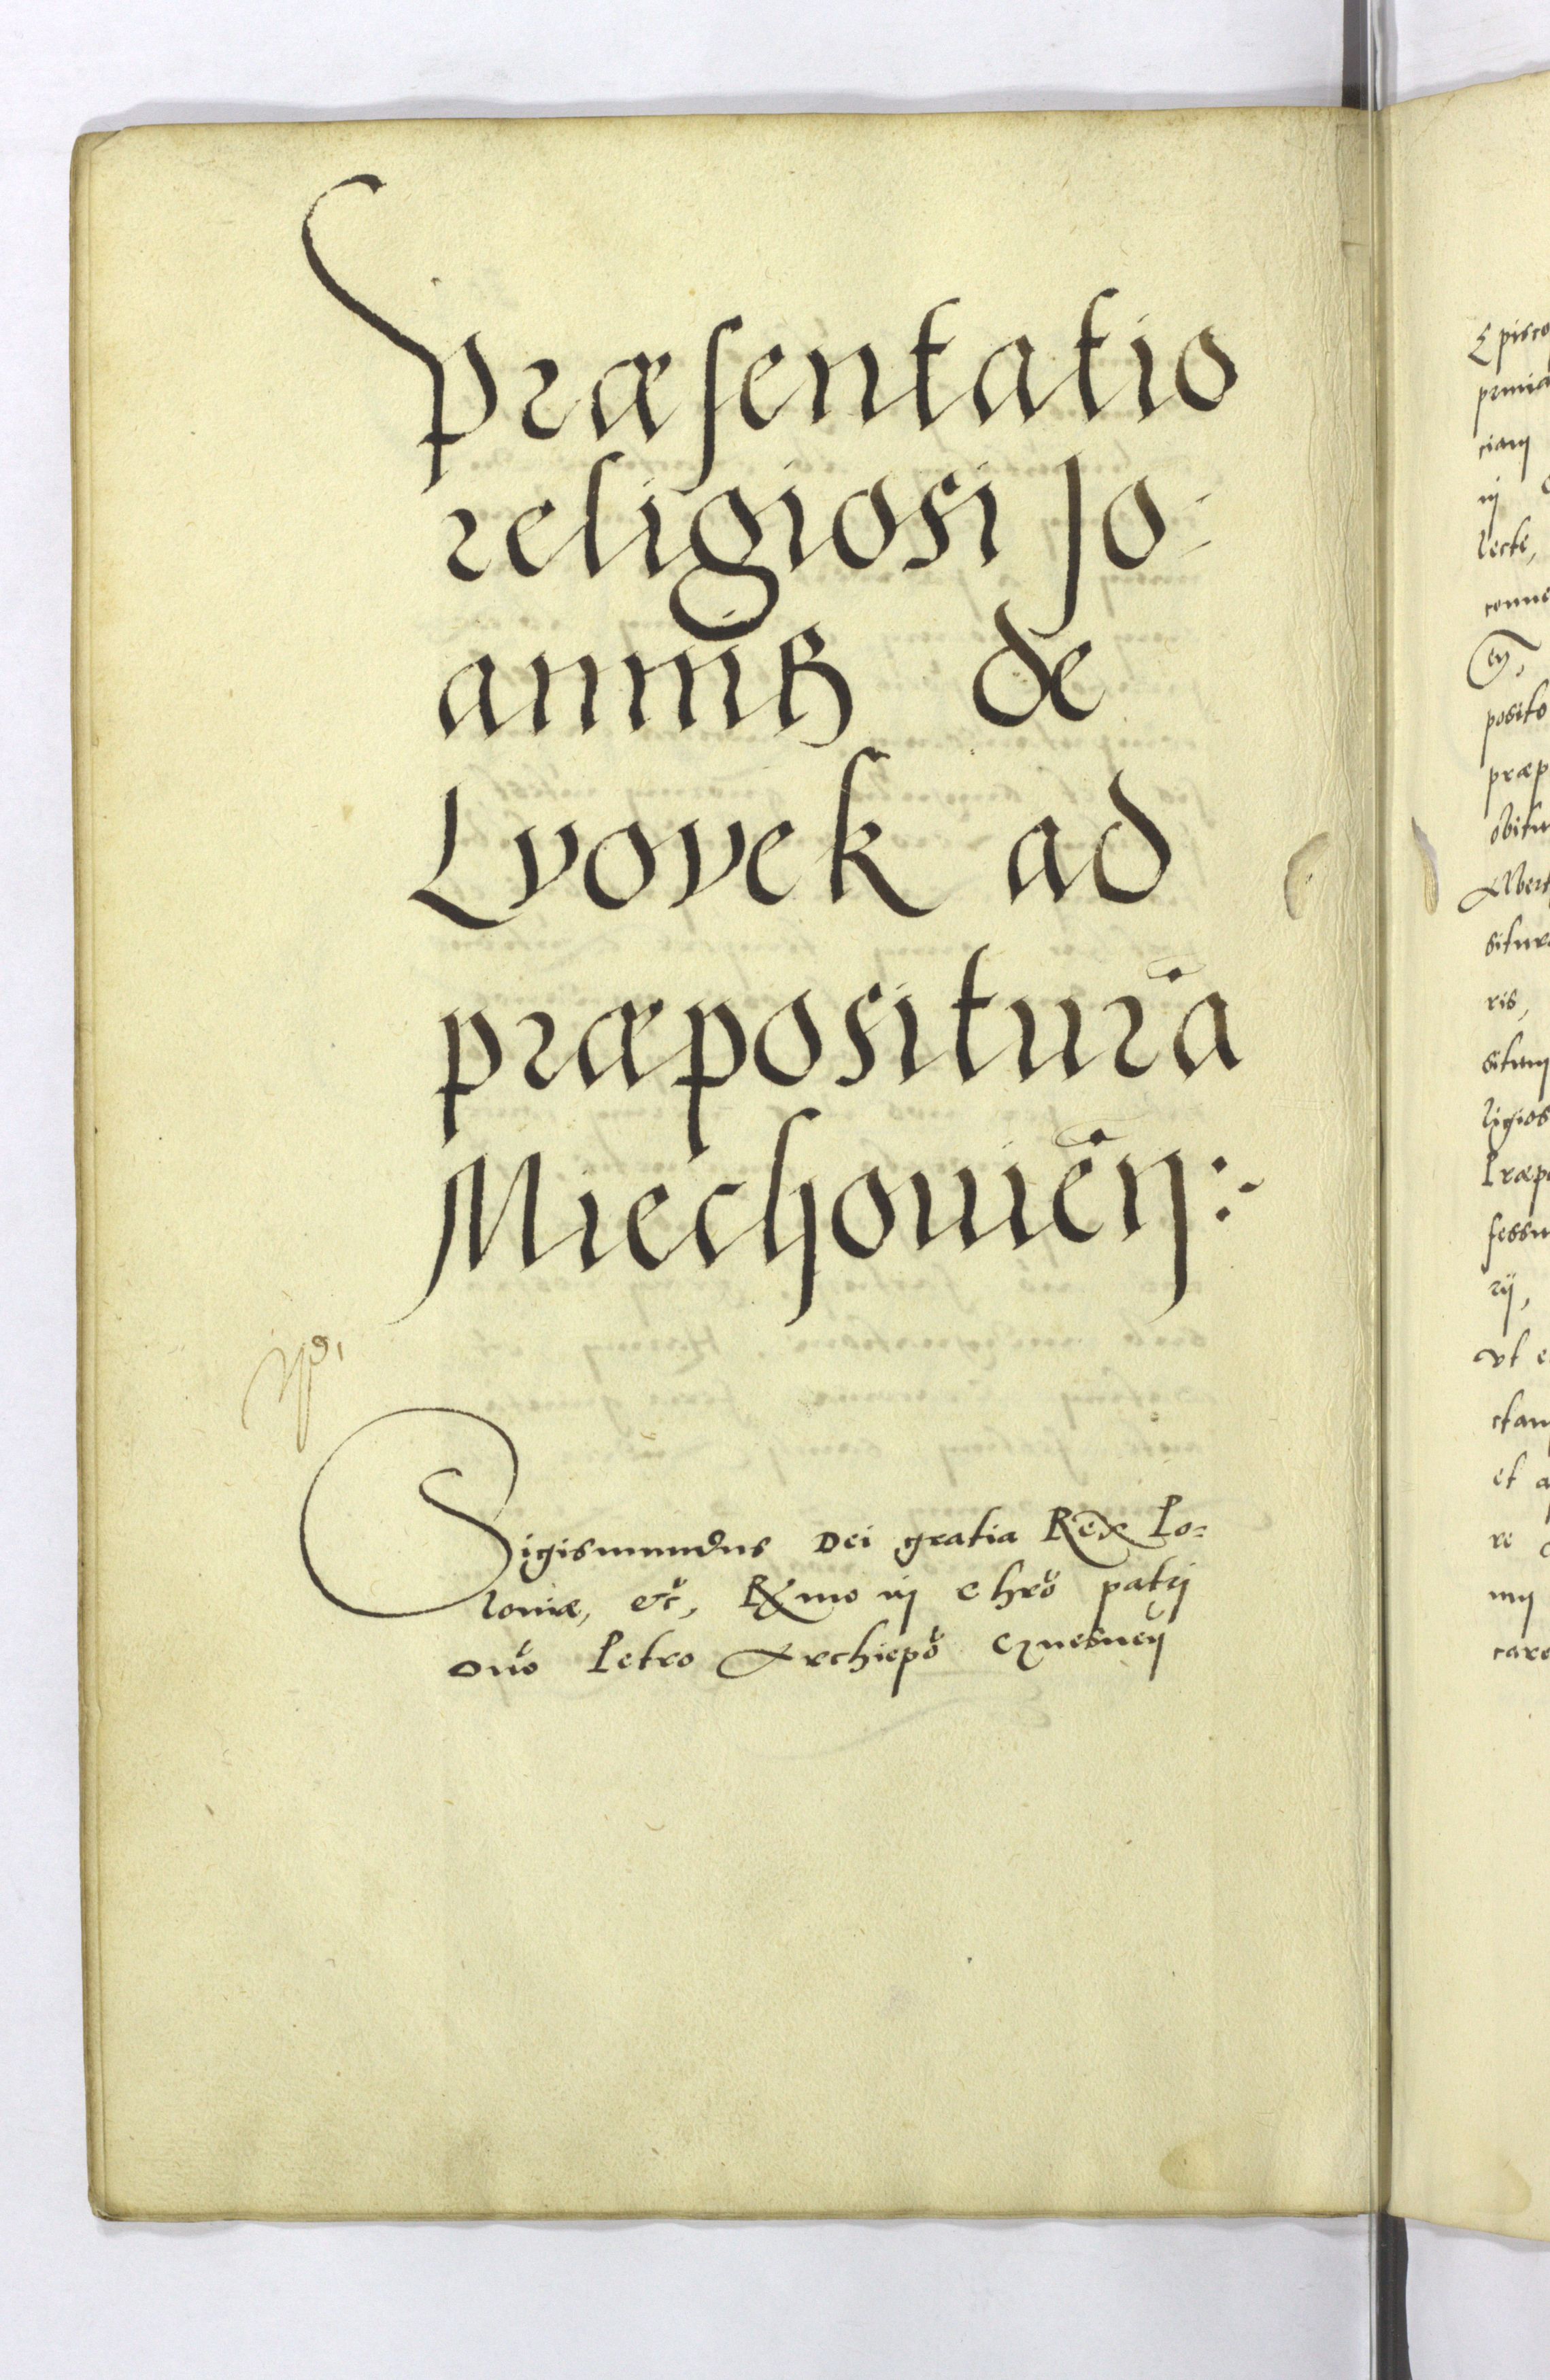 Præsentatio
religiosi Jo-
annis de
Lvovek ad
præpositurā
Miechovien̄:
Sigismundus Dei gratia Rex Po-
loniæ, etc̄, Rx̄mo in Chrō patrj
dn̄o Petro Archiepō Gznesnen̄
Episco
primia
ciam
in
lecte,
posito
præp
obitu
Albert
situra
ris,
situm
ligios
Præp
fessu
rij,
vt e
ctam
et a
re
care